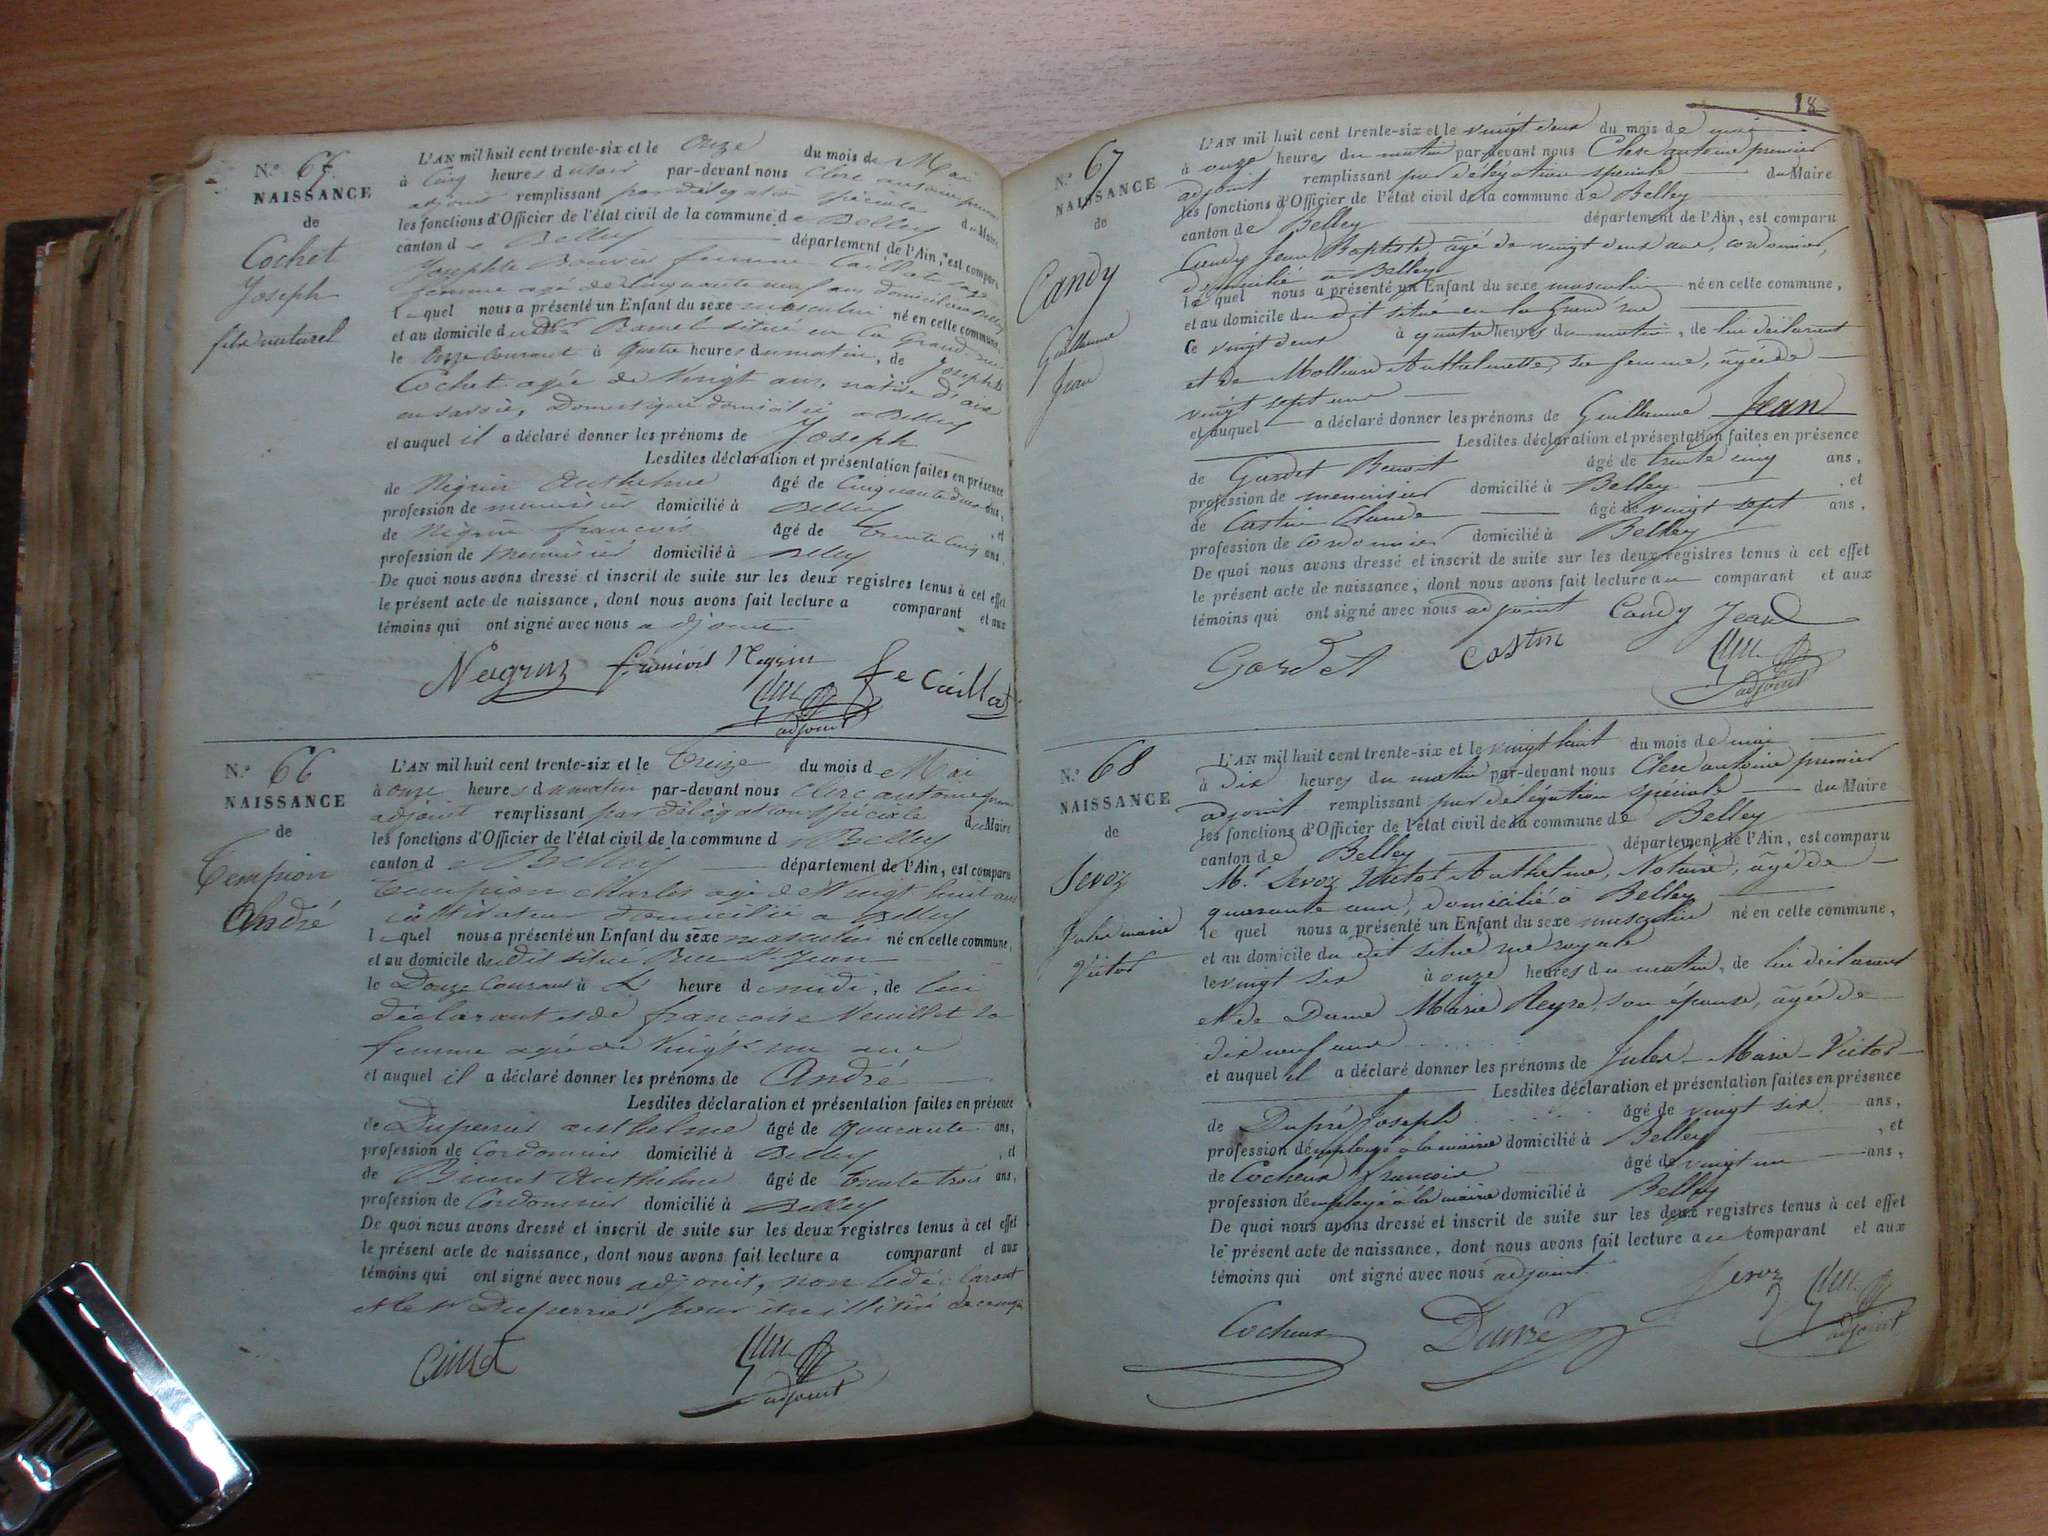 N.° 67
NAISSANCE
de
Cochet
Joseph
fils naturel
L'AN mil huit cent trente-six et le Onze du mois de Mai
à Cinq heures du soir par-devant nous Clerc antoine premier
adjoint remplissant par délégation spéciale du Maire
les fonctions d'Officier de l'état civil de la commune de Belley
canton de Belley département de l'Ain, est comparu
Josephte Bouvier femme Caillat sage
femme agé de Cinquante neuf ans domiciliée a Belley
lequel nous a présenté un Enfant du sexe masculin né en cette commune,
et au domicile du Ramel situé en la Grand rue
le Onze Courant à Quatre heures du matin, de Josephte
Cochet agée de Vingt ans, native d'aix
en savoie, Domestique domicilié a Belley
et auquel il a déclaré donner les prénoms de Joseph
Lesdites déclaration et présentation faites en présence
de Négrin Anthelme âgé de Cinquante deux ans,
profession de menuisier domicilié à Belley , et
de Négrin françois âgé de trente Cinq ans,
profession de menuisier domicilié à Belley
De quoi nous avons dressé et inscrit de suite sur les deux registres tenus à cet effet
le présent acte de naissance, dont nous avons fait lecture a comparant et aux
témoins qui ont signé avec nous adjoint
Negrin françois Negrin fe Caillat
adjoint
N.° 66
NAISSANCE
de
Tempion
André
L'AN mil huit cent trente-six et le Treize du mois de Mai
à onze heures du matin par-devant nous Clerc antoine premier
adjoint remplissant par délégation spéciale du Maire
les fonctions d'Officier de l'état civil de la commune de Belley
canton de Belley département de l'Ain, est comparu
Tempion Charles agé de Vingt huit ans
Cultivateur domicilié a Belley
lequel nous a présenté un Enfant du sexe masculin né en cette commune,
et au domicile dudit situé Rue St Jean
le Douze Courant à heure de midi, de lui
déclarant et de françoise Neuillet sa
femme agée de Vingt un ans
et auquel il a déclaré donner les prénoms de André
Lesdites déclaration et présentation faites en présence
de Duperrier anthelme âgé de Quarante ans,
profession de Cordonnier domicilié à Belley , et
de Anthelme âgé de trente trois ans,
profession de Cordonnier domicilié à Belley
De quoi nous avons dressé et inscrit de suite sur les deux registres tenus à cet effet
le présent acte de naissance, dont nous avons fait lecture a comparant et aux
témoins qui ont signé avec nous adjoint, non le déclarant
et le Sr Duperrier pour être illitéré
adjoint
18
N.° 67
NAISSANCE
de
Candy
Guillaume
Jean
L'AN mil huit cent trente-six et le vingt deux du mois de mai
à onze heures du matin par-devant nous Clerc antoine premier
adjoint remplissant par délégation spéciale du Maire
les fonctions d'Officier de l'état civil de la commune de Belley
canton de Belley département de l'Ain, est comparu
Candy Jean Baptiste, âgé de vingt deux ans, cordonnier,
domicilié a Belley
lequel nous a présenté un Enfant du sexe masculin né en cette commune,
et au domicile du dit situé en la Grand rue
le vingt deux à quatre heures du matin, de lui déclarant
et de Mollieux Anthelmette, sa femme, âgée de
vingt sept ans
et auquel a déclaré donner les prénoms de Guillaume Jean
Lesdites déclaration et présentation faites en présence
de Gardet Benoit âgé de trente cinq ans,
profession de menuisier domicilié à Belley , et
de Castin Claude âgé de vingt sept ans,
profession de cordonnier domicilié à Belley
De quoi nous avons dressé et inscrit de suite sur les deux registres tenus à cet effet
le présent acte de naissance, dont nous avons fait lecture au comparant et aux
témoins qui ont signé avec nous adjoint Candy Jean
Gardet Castin
adjoint
N.° 68
NAISSANCE
de
Sevoz
Jules marie
Victor
L'AN mil huit cent trente-six et le vingt huit du mois de mai
à Dix heures du matin par-devant nous Clerc antoine premier
adjoint remplissant par délégation spéciale du Maire
les fonctions d'Officier de l'état civil de la commune de Belley
canton de Belley département de l'Ain, est comparu
Mr. Sevoz Victor Anthelme, Notaire, âgé de
quarante ans, domicilié à Belley
lequel nous a présenté un Enfant du sexe masculin né en cette commune,
et au domicile du dit situé rue royale
le vingt six à onze heures du matin, de lui déclarant
et de Dame Marie Reyre, son épouse, âgée de
dix neuf ans
et auquel il a déclaré donner les prénoms de Jules-Marie-Victor
Lesdites déclaration et présentation faites en présence
de Dupré Joseph âgé de vingt six ans,
profession d'employé à la mairie domicilié à Belley , et
de Cocheux françois âgé de vingt un ans,
profession d'employé à la mairie domicilié à Belley
De quoi nous avons dressé et inscrit de suite sur les deux registres tenus à cet effet
le présent acte de naissance, dont nous avons fait lecture au comparant et aux
témoins qui ont signé avec nous adjoint. Sevoz
Cocheux Dupré
adjoint